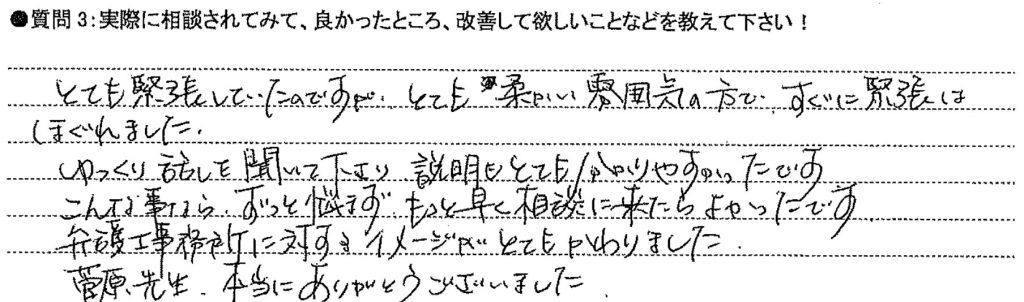 ●質問3:実際に相談されてみて、良かったところ、改善して欲しいことなどを教えて下さい!
とても緊張していたのですが、とても柔かい雰囲気の方で、すぐに緊張は
ほぐれました。
ゆっくり話しを聞いて下さり 説明もとても分かりやすかったです
こんな事なら、ずっと悩まず、もっと早く相談に来たらよかったです。
弁護士事務所に対するイメージがとてもかわりました。
菅原先生、本当にありがとうございました。